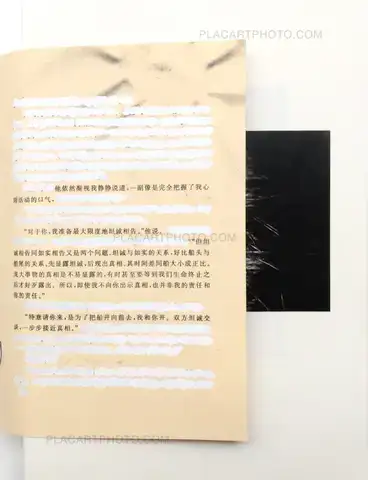 PLACARTPHOTO.COM
他依然凝视我静静说道，一副像是完全把握了我心
绪活动的口气。
“对于你，我准备最大限度地坦诚相告。”他说，
“但坦
诚相告同如实相告又是两个问题。坦诚与如实的关系，好比船头与
船尾的关系。先显露坦诚，后现出真相。其时间差同船大小成正比。
庞大事物的真相是不易显露的，有时甚至要等到我们生命终止之
后才好步露出。所以，即使我不向你出示真相，也并非我的责任和
你的责任。”
PLACARTPHOTO.COM
“特意请你来，是为了把船开向前去，我和你开。双方坦诚交
谈，一步步接近真相。”
PLACARTPHOTO.COM